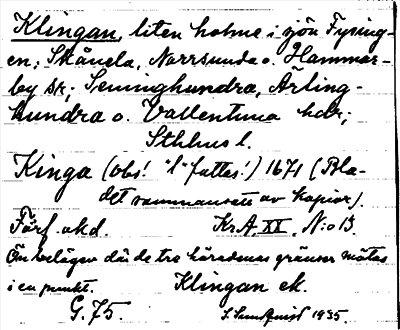 Klingan, liten holme i sjön Fysing-
en; Skånela, Norrsunda o. Hammar-
by sk; Seminghundra, Ärling-
hundra o. Vallentuna hdr;
Sthlms l.
Kinga (obs! "l" fattas!) 1671 (Bla-
det sammansatt av kopior).
Förf. okd. Kr.A. XX. N:o 13.
Ön belägen där de tre häradenas gränser mötas
i en punkt. Klingan ek.
G. 75. S. Sundquist 1935.